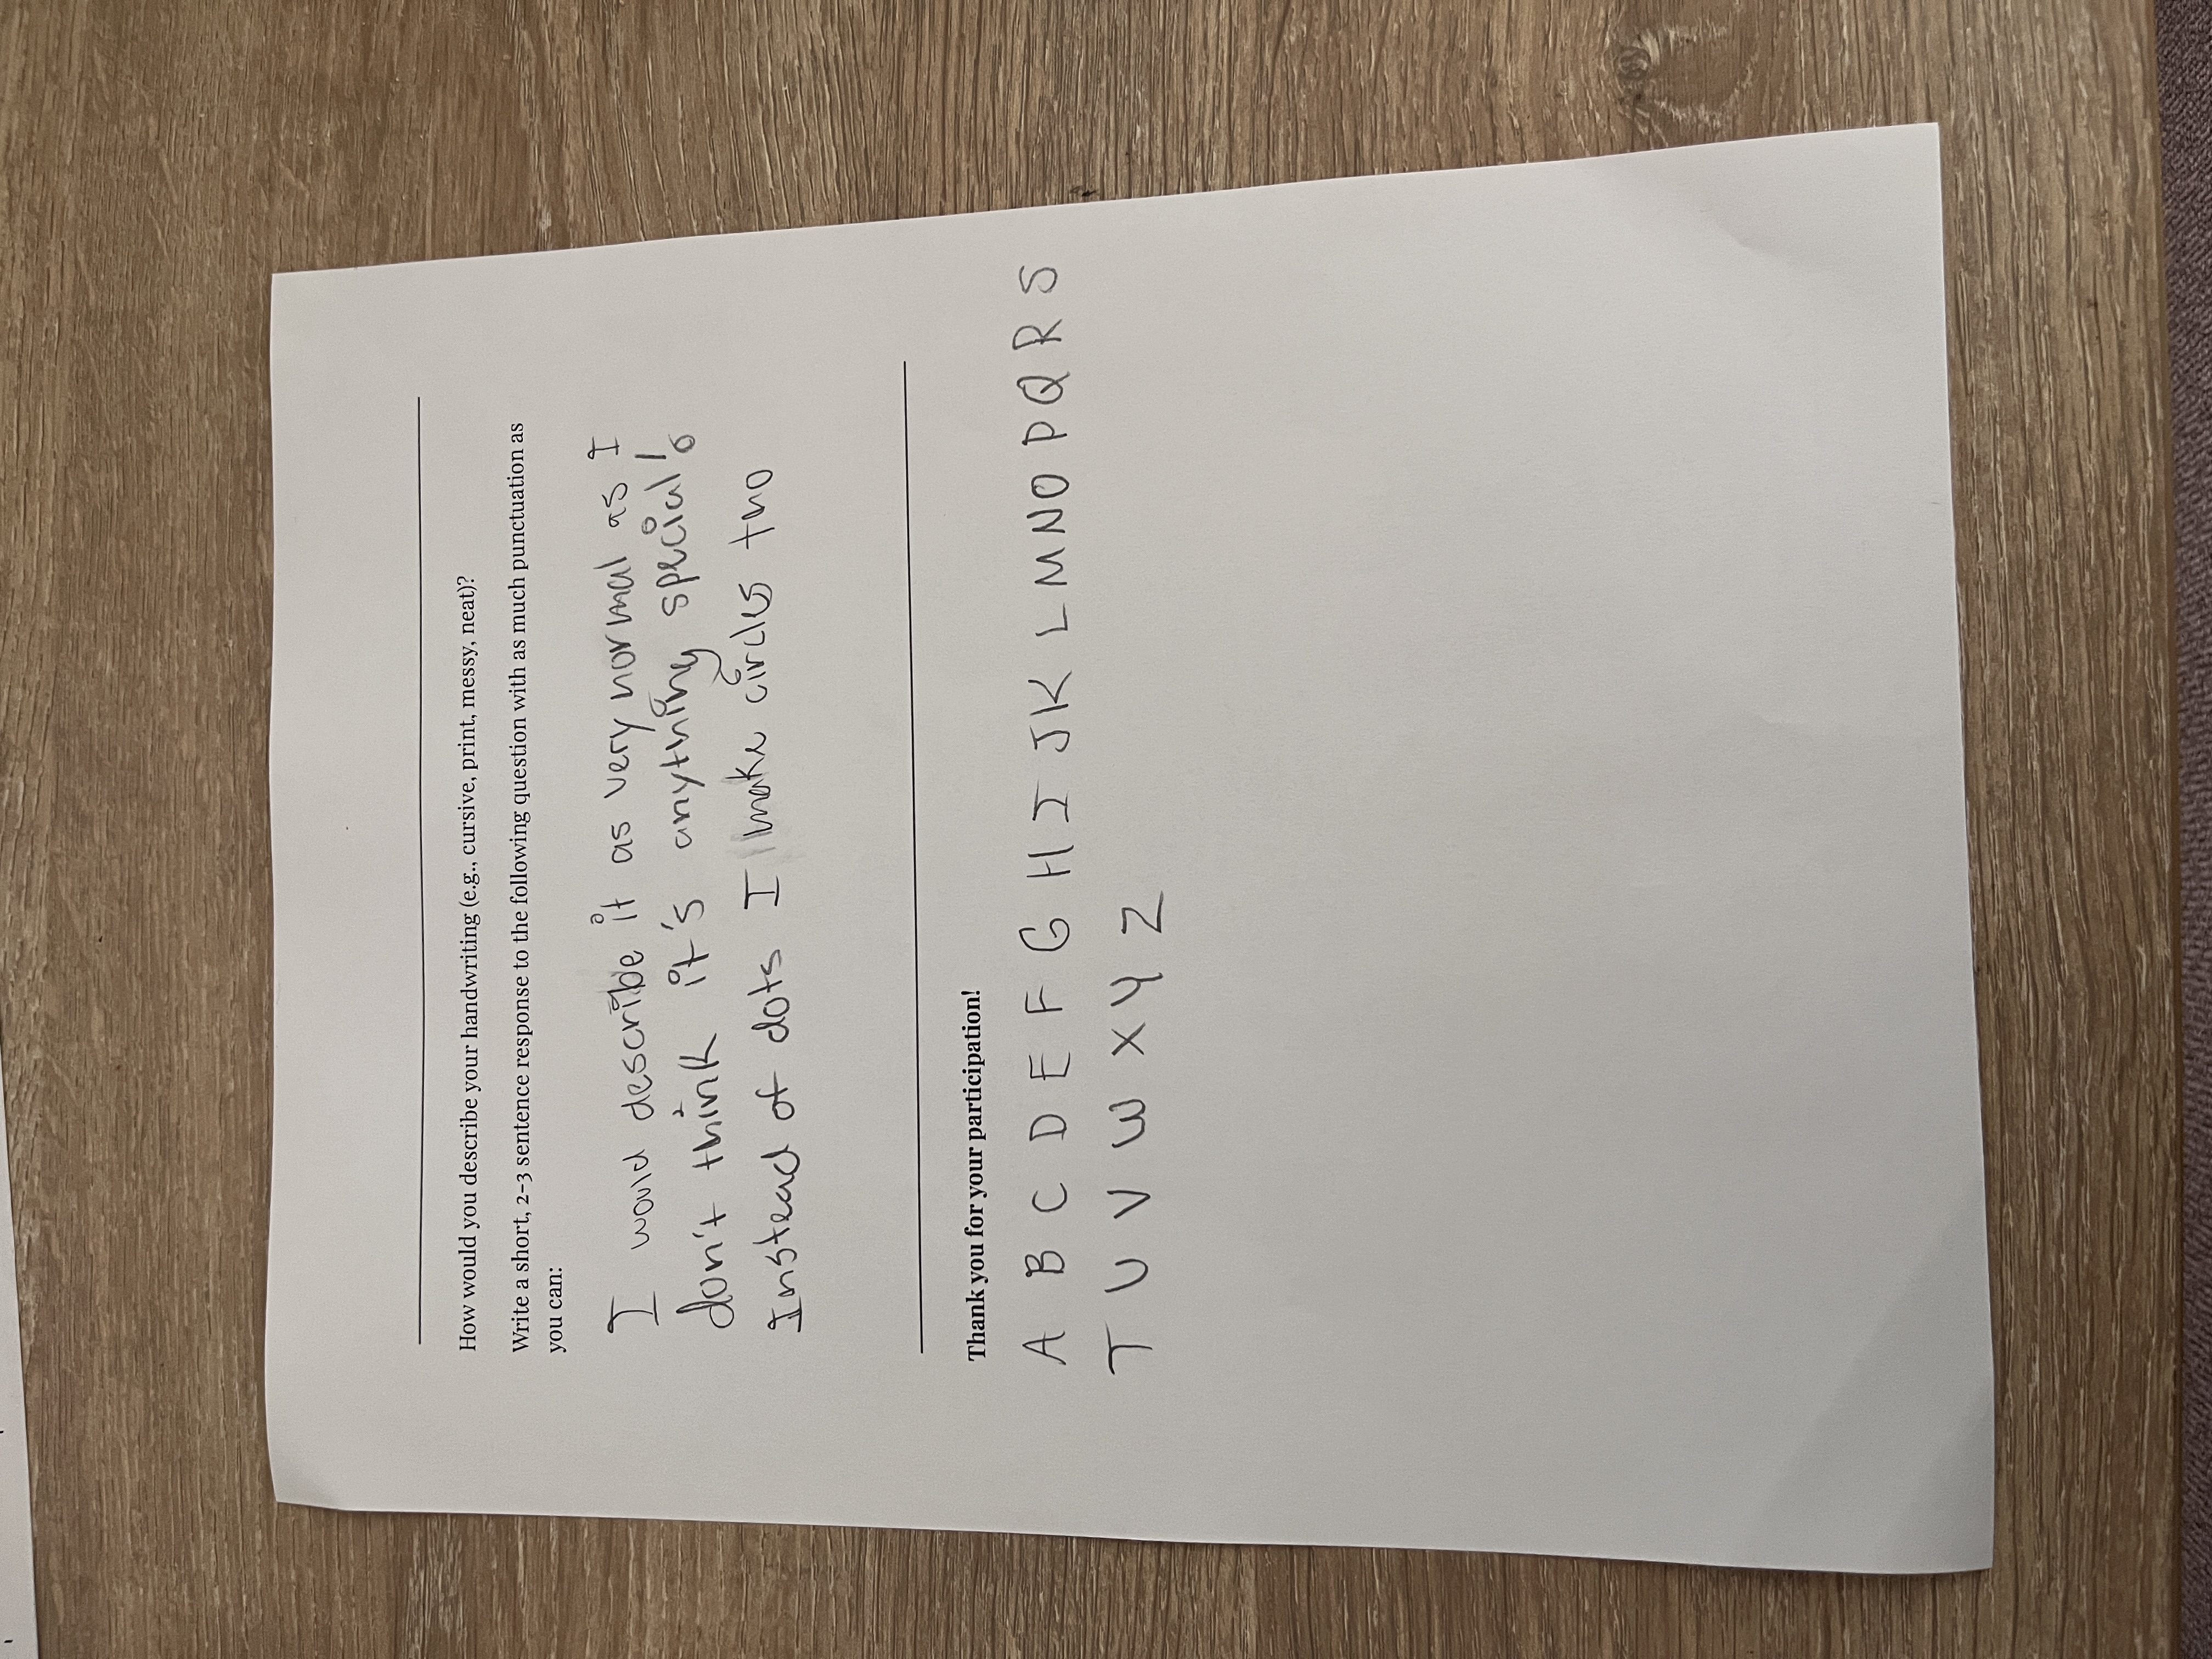 How would you describe your handwriting (e.g., cursive, print, messy, neat)?
Write a short, 2-3 sentence response to the following question with as much punctuation as
you can:
I would describe it as very normal as I
don't think it's anything special!
Instead of dots I make circles tho
Thank you for your participation!
A B C D E F G H I J K L M N O P Q R S
T U V W X Y Z